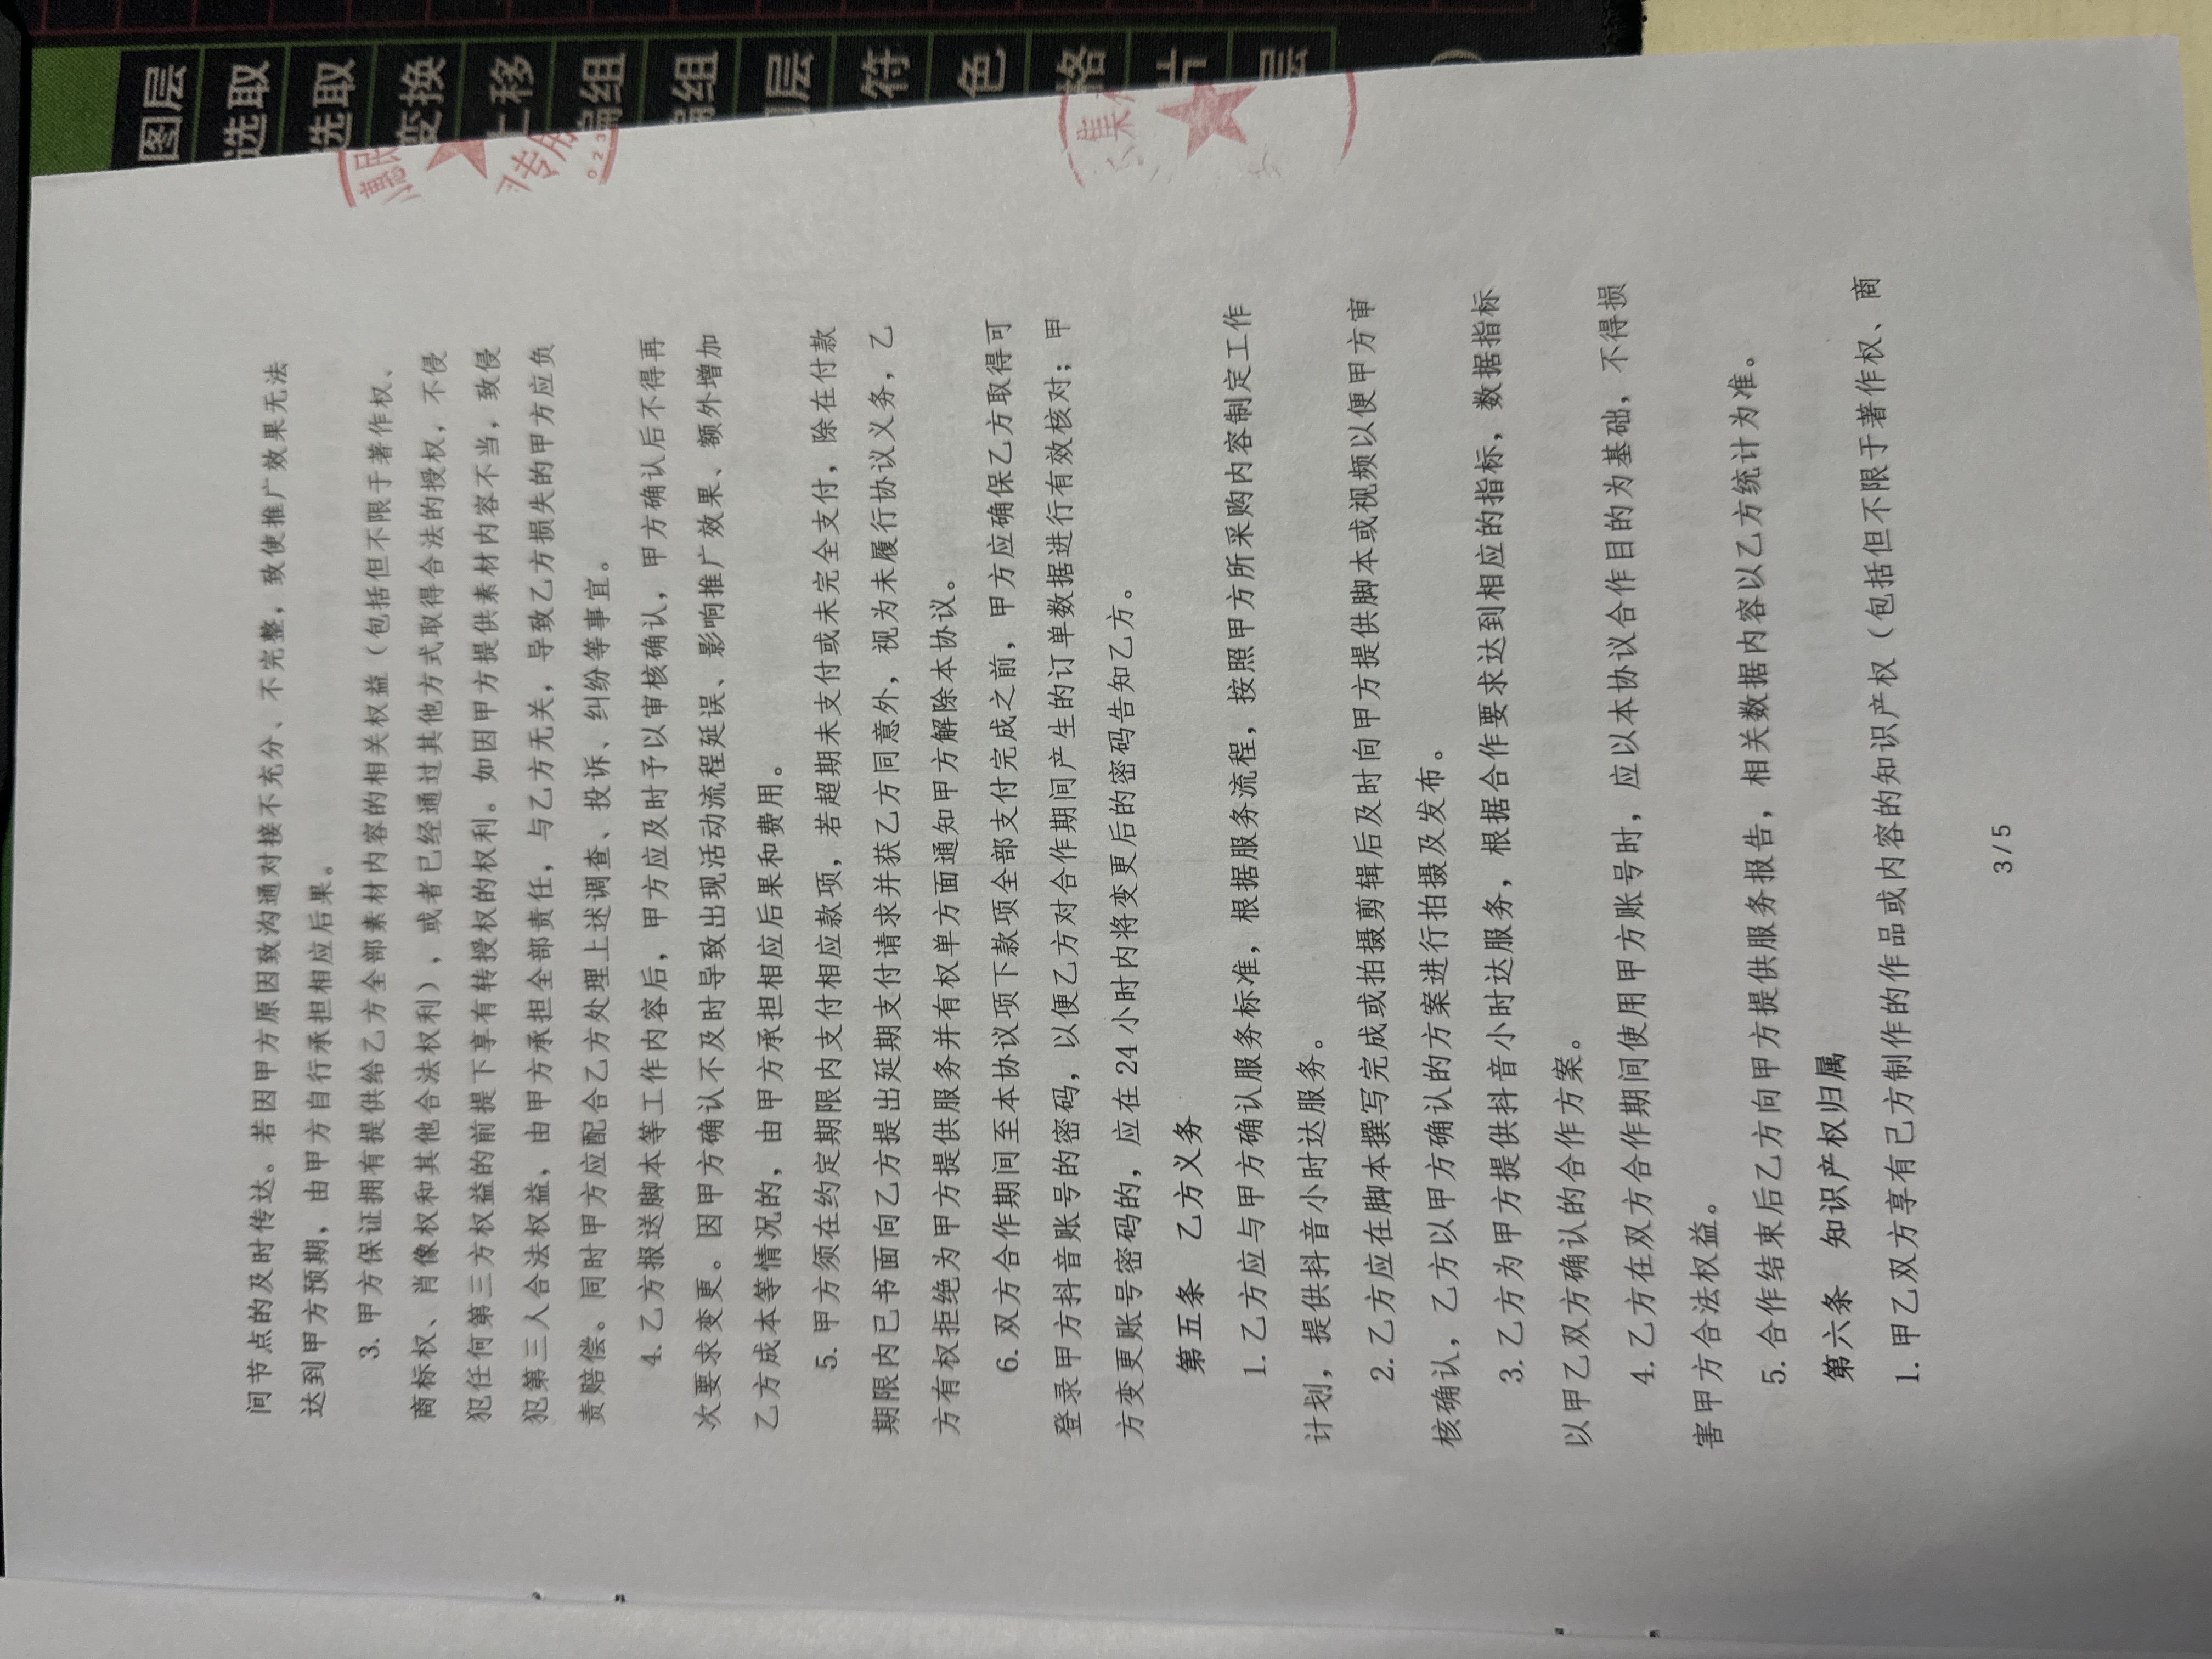 间节点的及时传达。若因甲方原因致沟通对接不充分、不完整，致使推广效果无法
达到甲方预期，由甲方自行承担相应后果。
3. 甲方保证拥有提供给乙方全部素材内容的相关权益（包括但不限于著作权、
商标权、肖像权和其他合法权利），或者已经通过其他方式取得合法的授权，不侵
犯任何第三方权益的前提下享有转授权的权利。如因甲方提供素材内容不当，致侵
犯第三人合法权益，由甲方承担全部责任，与乙方无关，导致乙方损失的甲方应负
责赔偿。同时甲方应配合乙方处理上述调查、投诉、纠纷等事宜。
4. 乙方报送脚本等工作内容后，甲方应及时予以审核确认，甲方确认后不得再
次要求变更。因甲方确认不及时导致出现活动流程延误、影响推广效果、额外增加
乙方成本等情况的，由甲方承担相应后果和费用。
5. 甲方须在约定期限内支付相应款项，若超期未支付或未完全支付，除在付款
期限内已书面向乙方提出延期支付请求并获乙方同意外，视为未履行协议义务，乙
方有权拒绝为甲方提供服务并有权单方面通知甲方解除本协议。
6. 双方合作期间至本协议项下款项全部支付完成之前，甲方应确保乙方取得可
登录甲方抖音账号的密码，以便乙方对合作期间产生的订单数据进行有效核对；甲
方变更账号密码的，应在 24 小时内将变更后的密码告知乙方。
第五条 乙方义务
1. 乙方应与甲方确认服务标准，根据服务流程，按照甲方所采购内容制定工作
计划，提供抖音小时达服务。
2. 乙方应在脚本撰写完成或拍摄剪辑后及时向甲方提供脚本或视频以便甲方审
核确认，乙方以甲方确认的方案进行拍摄及发布。
3. 乙方为甲方提供抖音小时达服务，根据合作要求达到相应的指标，数据指标
以甲乙双方确认的合作方案。
4. 乙方在双方合作期间使用甲方账号时，应以本协议合作目的为基础，不得损
害甲方合法权益。
5. 合作结束后乙方向甲方提供服务报告，相关数据内容以乙方统计为准。
第六条 知识产权归属
1. 甲乙双方享有己方制作的作品或内容的知识产权（包括但不限于著作权、商
3/5
图层
选取
选取
变换
上移
编组
编组
图层
符
色
格
片
层
专用
023
集